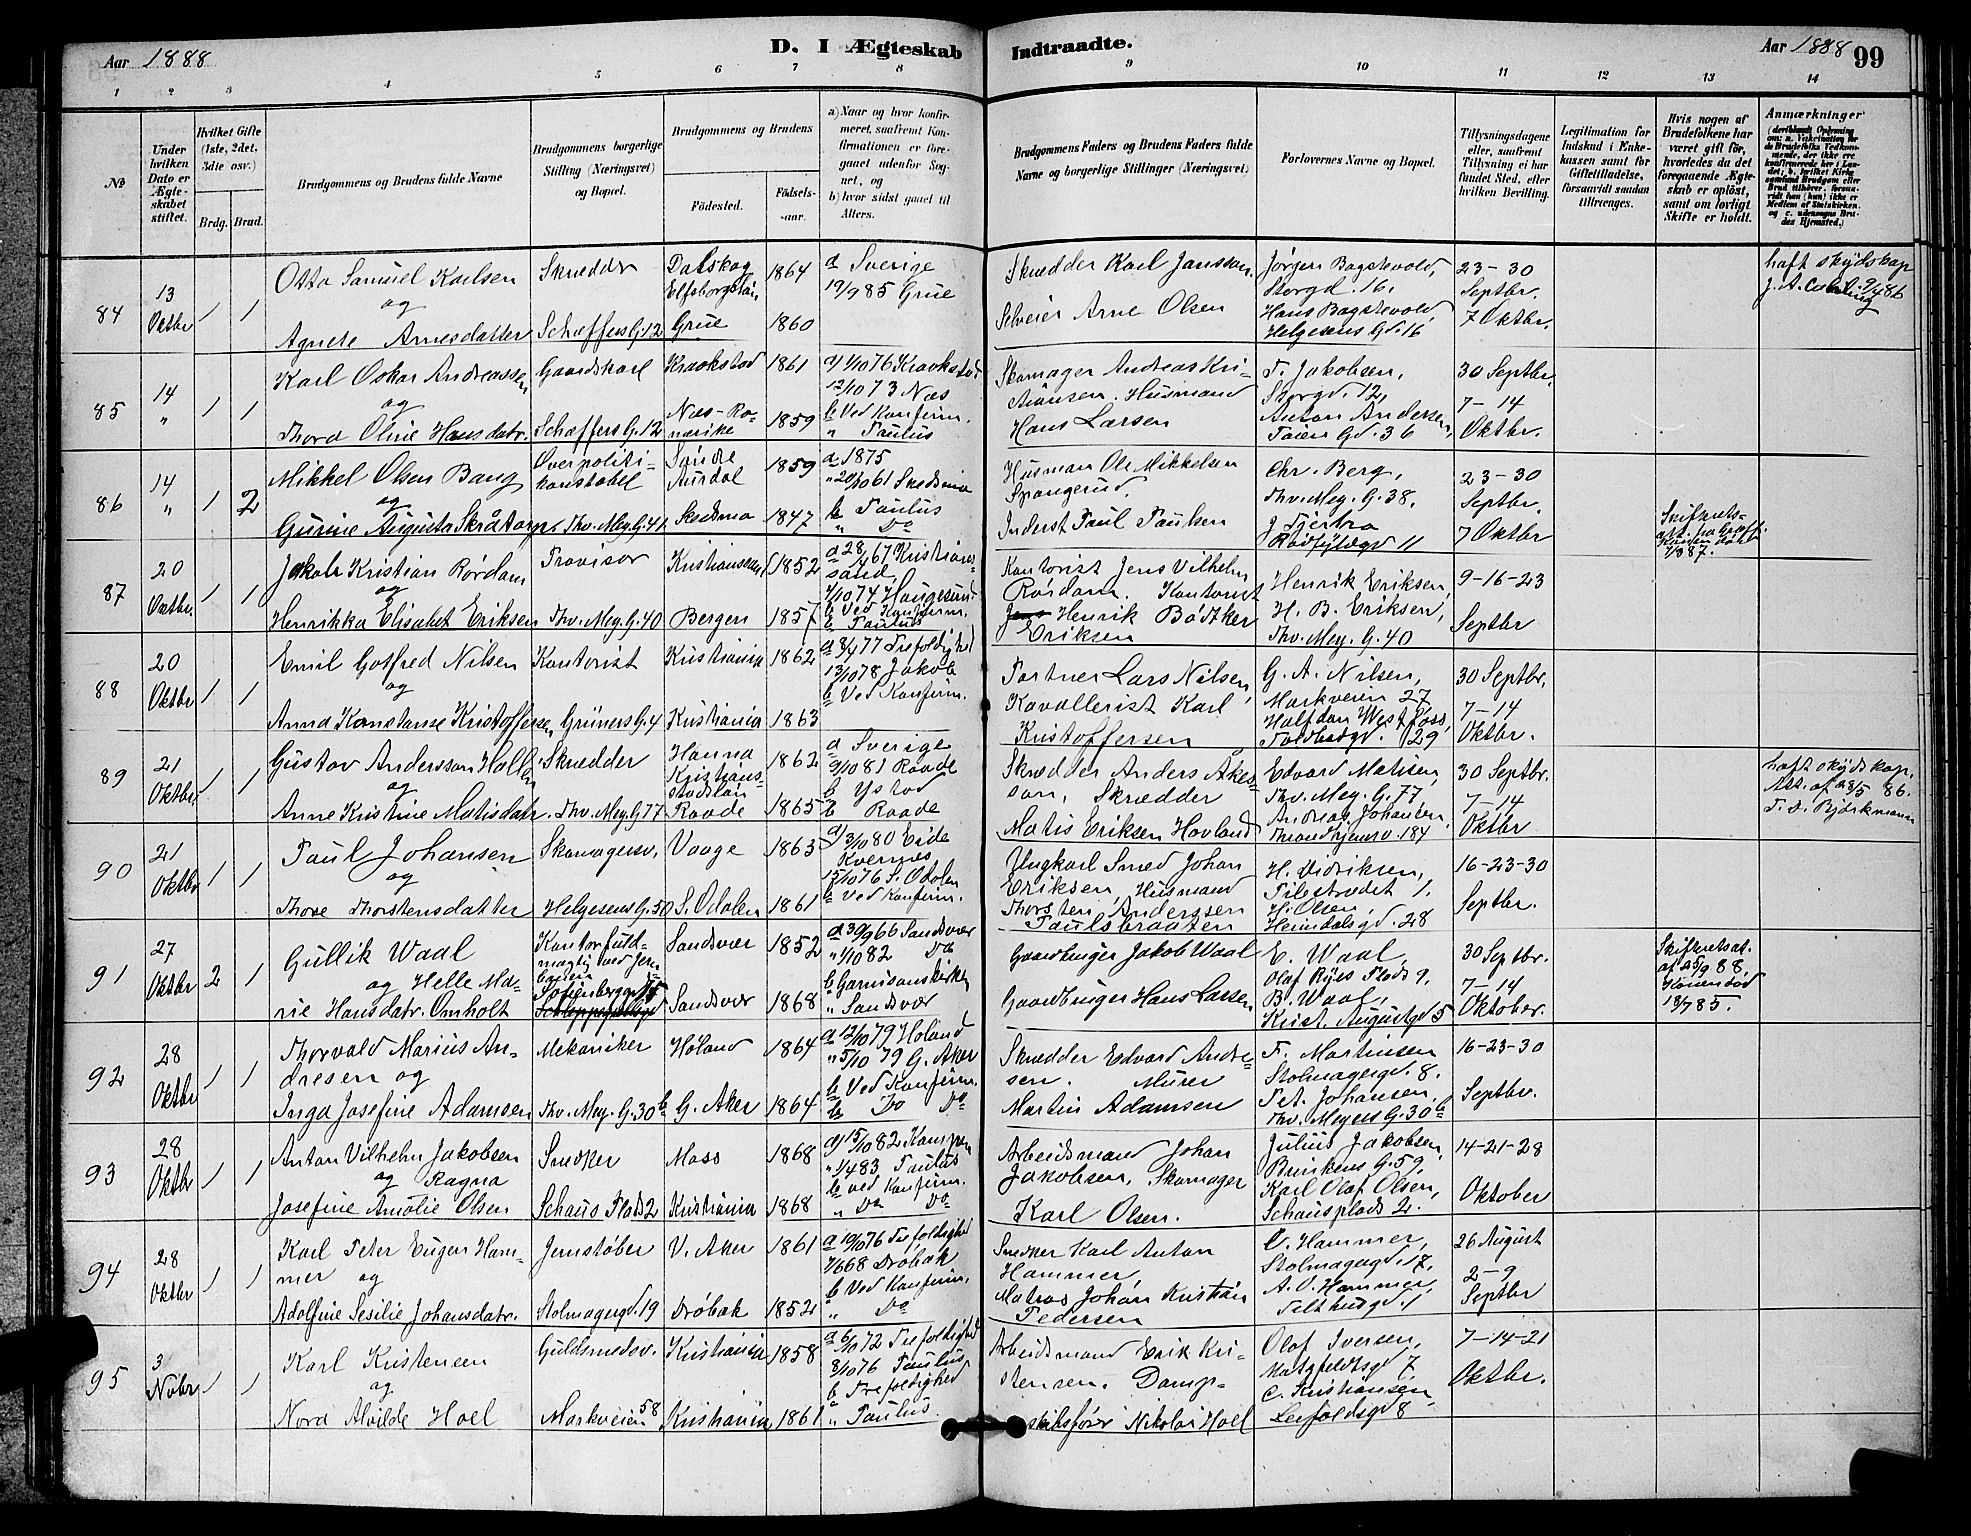 Aar 1888
D. I Ægteskab Indtraadte.
Aar 1888 99
1 2 3 4 5 6 7 8 9 10 11 12 13 14
No
Under hvilken Dato er Ægteskabet stiftet.
Hvilket Gifte (1ste, 2det, 3die osv.)
Brdg. Brud.
Brudgommens og Brudens fulde Navne
Brudgommens borgerlige Stilling (Næringsvei) og Bopæl.
Brudgommens og Brudens
Födested. Födsels-aar.
a) Naar og hvor konfirmeret, saafremt Konfirmationen er foregaaet udenfor Sognet, og
b) hvor sidst gaaet til Alters.
Brudgommens Faders og Brudens Faders fulde Navne og borgerlige Stillinger (Næringsvei)
Forlovernes Navne og Bopæl.
Tillysningsdagene eller, saafremt Tillysning ei har fundet Sted, efter hvilken Bevilling.
Legitimation for Indskud i Enkekassen samt for Giftetilladelse, forsaavidt saadan tiltrænges.
Hvis nogen af Brudefolkene har været gift før, hvorledes da det foregaaende Ægteskab er oplöst, samt om lovligt Skifte er holdt.
Anmærkninger
84 13 Oktbr 1 1
Otto Samuel Karlsen
og
Agnete Arnesdatter
Skrædder
Schæffers G. 12
Dalskog
Elfsborgslän 1864
Grue 1860
a Sverige
19/9 85 Grue
Skrædder Karl Jansson.
Selveier Arne Olsen
Jørgen Bagstevold,
Storgd. 16,
Hans Bagstevold,
Helgesens Gd. 16
23-30
Septbr.
7 Oktbr.
85 14 " 1 1
Karl Oskar Andreassen
og
Thora Oline Hansdatr.
Gaardskarl
Schæffers G. 12
Kraakstad 1861
Næs-Romerike 1859
a 1/10 76 Kraakstad
12/10 73 Næs
b Ved Konfirm.
" Paulus
Skomager Andreas Kristiansen. Husmand
Hans Larsen
T. Jakobsen,
Storgd. 12,
Anton Andersen,
Tøien Gd. 36
30 Septbr.
7-14
Oktbr.
86 14 " 1 2
Mikkel Olsen Bang
og
Gurine Augusta Skråtorp.
Overpolitikonstabel
Thv. Mey. G. 41
Søndre
Aurdal 1859
Skedsmo 1847
a 1875
" 20/10 61 Skedsmo
b Paulus
" Do
Husman Ole Mikkelsen
Spangerud.
Inderst Paul Paulsen
Chr. Berg,
Thv. Mey. G. 38,
23-30
Septbr.
7 Oktbr
87 20 Oktbr. 1 1
Jakob Kristian Rørdam
og
Henrikka Elisabet Eriksen
Provisor
Thv. Mey. G. 40
Kristianssand 1852
Bergen 1857
a 28/4 67 Kristianssand
1/10 74 Haugesund
b Ved Konfirm.
b Paulus
Kontorist Jens Vilhelm
Rørdam. Kontorist
Henrik Bødtker
Eriksen
Henrik Eriksen,
H. B. Eriksen,
Thv. Mey. G. 40
9-16-23
Septbr
88 20 Oktbr 1 1
Emil Gotfred Nilsen
og
Anna Konstanse Kristoffersen
Kontorist
Grüners G. 4
Kristiania 1862
Kristiania 1863
a 8/4 77 Trefoldighed
13/10 78 Jakob
b Ved Konfirm.
Portner Lars Nilsen,
Kavallerist Karl
Kristoffersen
G. A. Nilsen,
Markveien 27,
Halfdan Westfoss,
Toldbodgd. 29
30 Septbr.
7-14
Oktbr.
89 21 Oktbr 1 1
Gustav Andersson Hallén
og
Anne Kristine Matisdatr.
Skrædder
Thv. Mey. G. 77
Hanna
Kristiansstadslän 1862
Raade 1865
a Sverige
9/10 81 Raade
b Ystad
b Raade
Skrædder Anders Åkesson, Skrædder
Matis Eriksen Hovland
Edvard Matisen,
Thv. Mey. G. 77
Andreas Johansen,
Throndhjemsv. 184
30 Septbr.
7-14
Oktbr
haft skydskop.
Att. af 23/5 86.
90 21 Oktbr 1 1
Paul Johansen
og
Thore Thorstensdatter
Skomagersv.
Helgesens G. 50
Vaage 1863
S. Odalen 1861
a 3/10 80 Eide
Kvernes
15/10 76 S. Odalen
b Ved Konfirm.
Ungkarl Smed Johan
Eriksen, Husmand
Thorsten Anderssen
Paulsbraaten
H. Didriksen,
Pilestrædet 1,
H. Olsen,
Heimdalsgd. 28
16-23-30
Septbr.
91 27 Oktbr 2 1
Gullik Waal
og Helle Marie Hansdatr. Omholt
Kontorfuldmægtig ved Jernbanen
Sandsvær 1852
Sandsvær 1868
a 30/9 66 Sandsvær
" 1/10 82 Do
b Garnisonskirken
" Sandsvær
Gaardbruger Jakob Waal
Gaardbruger Hans Larsen
E. Waal,
Olaf Ryes Plads 9,
B. Waal,
Krist. Augustgd 5
30 Septbr.
7-14
Oktober.
Skifteretsat.
af 25/9 88,
Konen død
18/7 85.
92 28 Oktbr 1 1
Thorvald Marius Andresen og
Inga Josefine Adamsen
Mekaniker
Thv. Mey. G. 30 b
Høland 1864
G. Aker 1864
a 12/10 79 Høland
" 5/10 79 G. Aker
b Ved Konfirm.
b Do Do
Skrædder Edvard Andresen. Murer
Martin Adamsen
F. Martinsen
Stolmagergd. 8.
Pet. Johansen.
Thv. Meyers G. 30 b
16-23-30
Septbr.
93 28 Oktbr 1 1
Anton Vilhelm Jakobsen
og Ragna
Josefine Amalie Olsen
Snedker
Schous Plads 2
Moss 1868
Kristiania 1868
a 15/10 82 Kampen
" 1/4 83 Paulus
b ved Konfirm.
" Do Do
Arbeidsmand Johan
Jakobsen, Skomager
Karl Olsen.
Julius Jakobsen,
Brinkens G. 59,
Karl Olaf Olsen,
Schousplads 2.
14-21-28
Oktober
94 28 Oktbr 1 1
Karl Peter Eugen Hammer og
Adolfine Sesilie Johansdatr.
Jernstøber
Stolmagergd. 19
V. Aker 1861
Drøbak 1852
a 19/10 76 Trefoldighed
7/6 68 Drøbak
b Ved Konfirm.
" Do
Snedker Karl Anton
Hammer,
Matros Johan Kristian
Pedersen
C. Hammer,
Stolmagergd. 17,
A. O. Hammer,
Telthusgd. 1
26 August
2-9
Septbr
95 3 Novbr 1 1
Karl Kristensen
og
Nora Alvilde Hoel
Guldsmedsv.
Markveien 58
Kristiania 1858
Kristiania 1861
a 6/10 72 Trefoldighed
8/10 76 Paulus
b Trefoldighed
" Paulus
Arbeidsmand Erik Kristensen. Dampskibsfører Nikolai Hoel
Olaf Iversen,
C. Kristiansen
7-14-21
Oktbr.